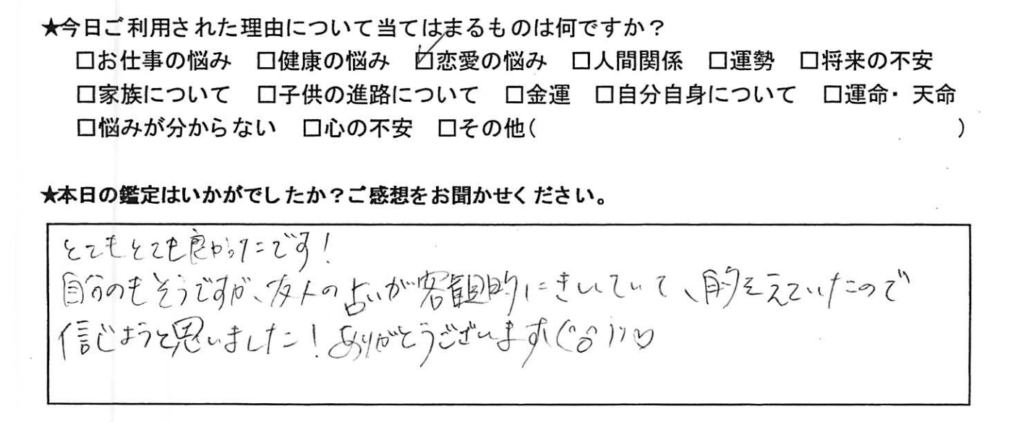 ★今日ご利用された理由について当てはまるものは何ですか？
□お仕事の悩み □健康の悩み ☑恋愛の悩み □人間関係 □運勢 □将来の不安
□家族について □子供の進路について □金運 □自分自身について □運命・天命
□悩みが分からない □心の不安 □その他( )
★本日の鑑定はいかがでしたか？ご感想をお聞かせください。
とてもとても良かったです！
自分のもそうですが、友人の占いが客観的にきいていて、的をえていたので
信じようと思いました！ありがとうございます(^o^))♡